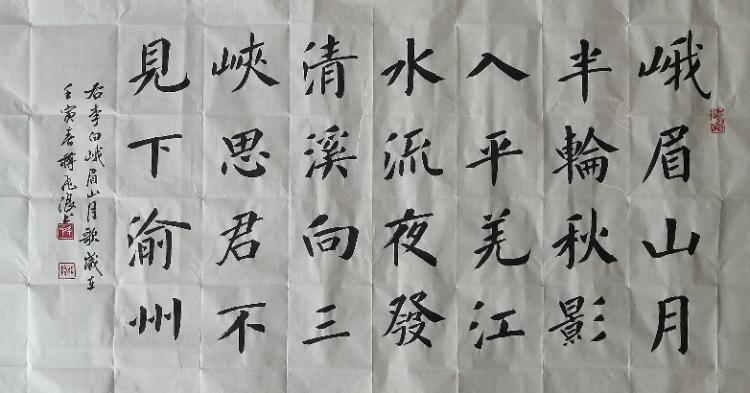 峨眉山月
半輪秋影
入平羌江
水流夜發
清溪向三
峽思君不
見下渝州
右李白峨眉山月歌歲在
壬寅春